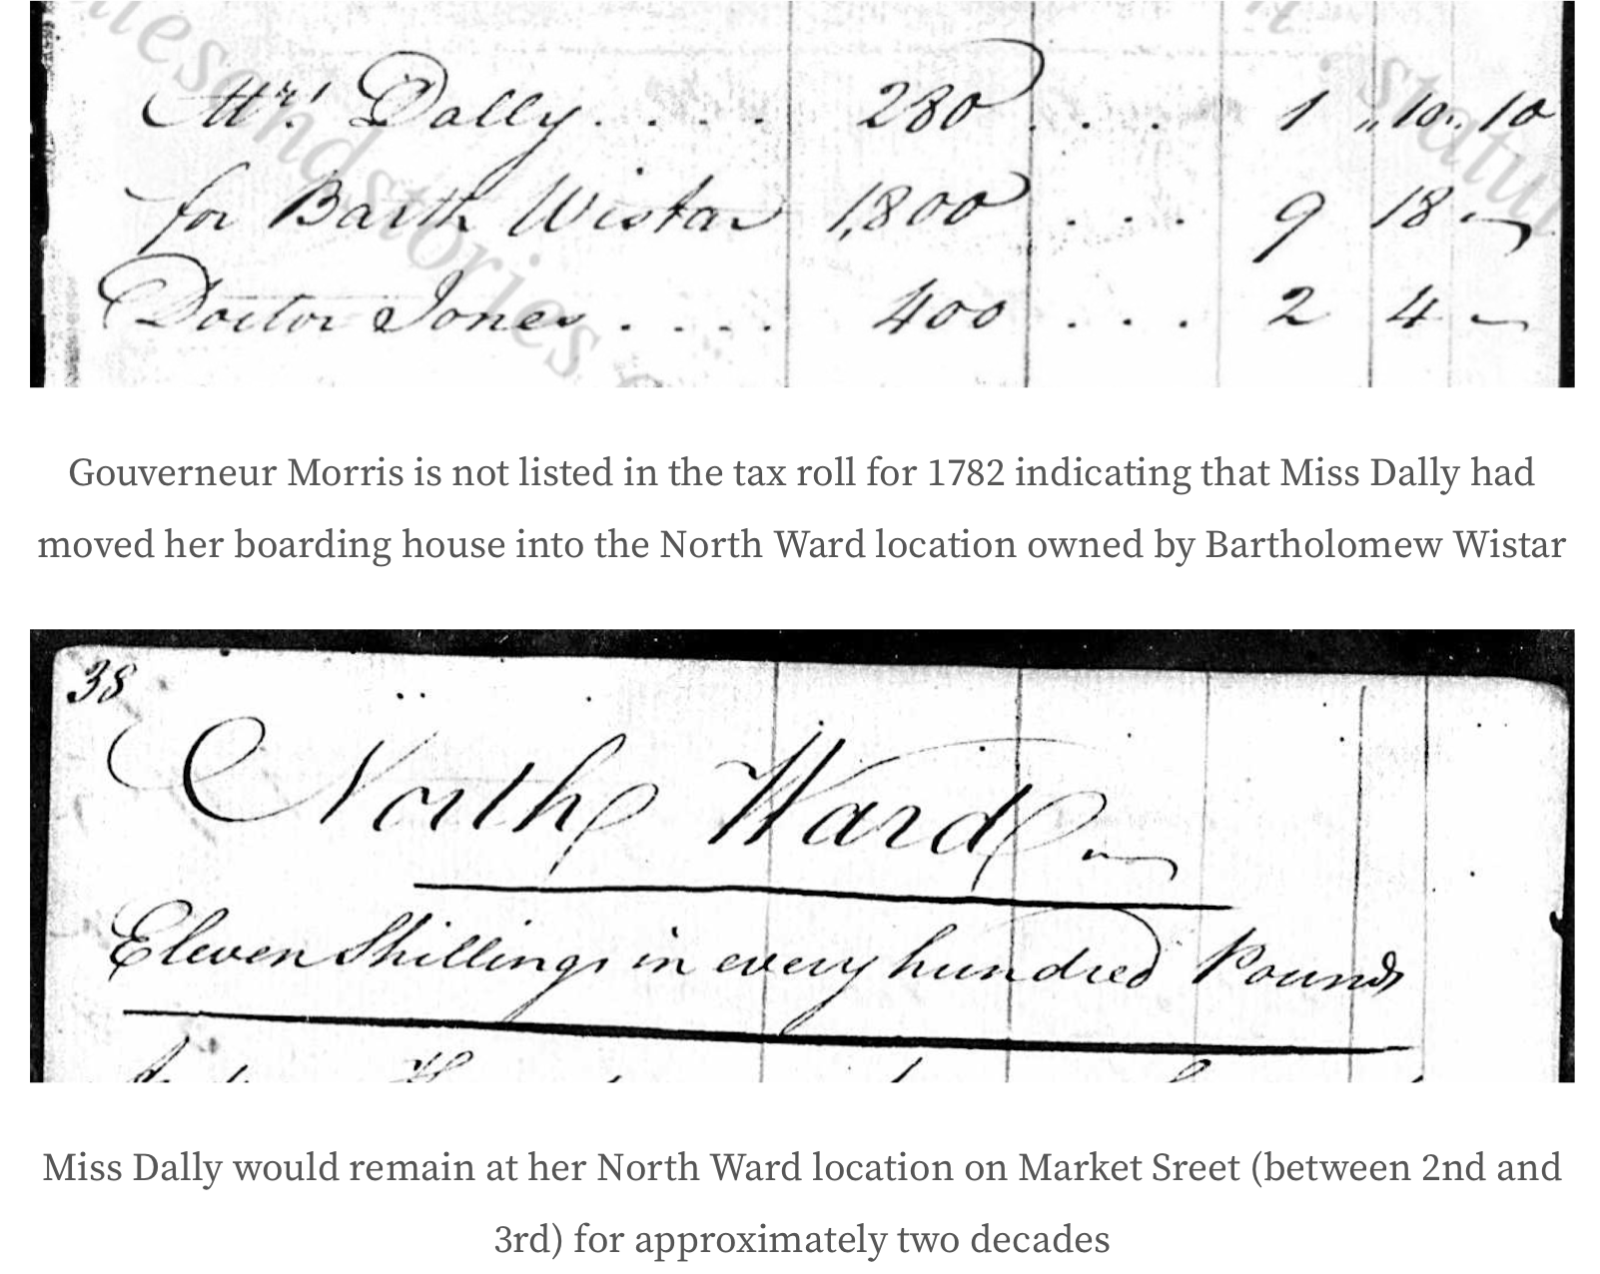 Mrs. Dally. . . . 280 . . . 1 „ 10 „ 10
for Barth Wistar 1,800 . . . 9 18 —
Doctor Jones . . . . 400 . . . 2 4 —
lesandstories
statut
Gouverneur Morris is not listed in the tax roll for 1782 indicating that Miss Dally had
moved her boarding house into the North Ward location owned by Bartholomew Wistar
38
North Ward
Eleven Shillings in every hundred Pounds
Miss Dally would remain at her North Ward location on Market Sreet (between 2nd and
3rd) for approximately two decades